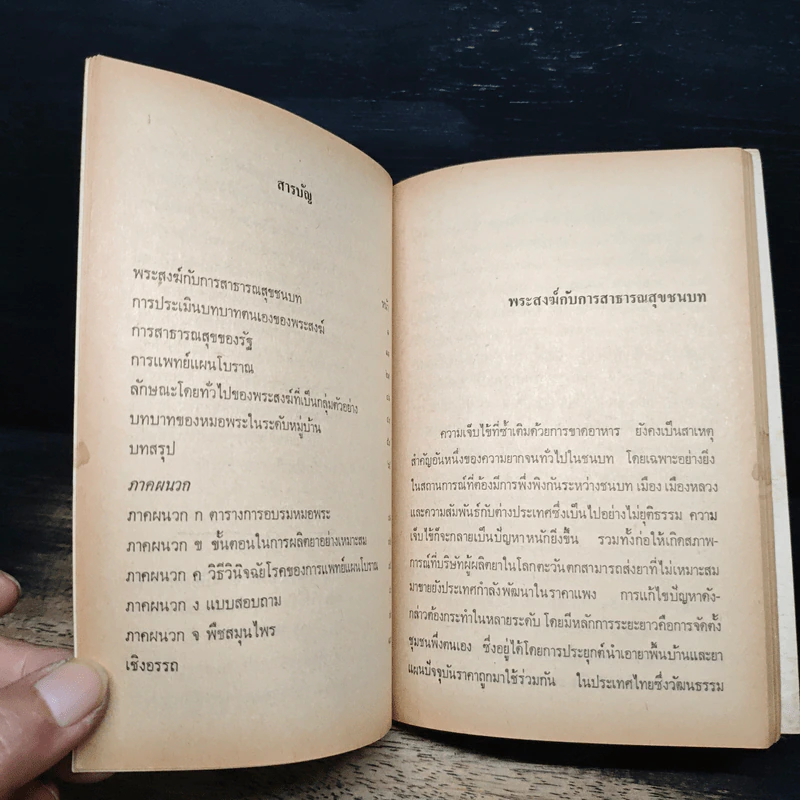 สารบัญ
หน้า
พระสงฆ์กับการสาธารณสุขชนบท
การประเมินบทบาทตนเองของพระสงฆ์
การสาธารณสุขของรัฐ
การแพทย์แผนโบราณ
ลักษณะโดยทั่วไปของพระสงฆ์ที่เป็นกลุ่มตัวอย่าง
บทบาทของหมอพระในระดับหมู่บ้าน
บทสรุป
ภาคผนวก
ภาคผนวก ก ตารางการอบรมหมอพระ
ภาคผนวก ข ขั้นตอนในการผลิตยาอย่างเหมาะสม
ภาคผนวก ค วิธีวินิจฉัยโรคของการแพทย์แผนโบราณ
ภาคผนวก ง แบบสอบถาม
ภาคผนวก จ พืชสมุนไพร
เชิงอรรถ
พระสงฆ์กับการสาธารณสุขชนบท
ความเจ็บไข้ที่ซ้ำเติมด้วยการขาดอาหาร ยังคงเป็นสาเหตุ
สำคัญอันหนึ่งของความยากจนทั่วไปในชนบท โดยเฉพาะอย่างยิ่ง
ในสถานการณ์ที่ต้องมีการพึ่งพิงกันระหว่างชนบท เมือง เมืองหลวง
และความสัมพันธ์กับต่างประเทศซึ่งเป็นไปอย่างไม่ยุติธรรม ความ
เจ็บไข้ก็จะกลายเป็นปัญหาหนักยิ่งขึ้น รวมทั้งก่อให้เกิดสภาพ-
การณ์ที่บริษัทผู้ผลิตยาในโลกตะวันตกสามารถส่งยาที่ไม่เหมาะสม
มาขายยังประเทศกำลังพัฒนาในราคาแพง การแก้ไขปัญหาดัง-
กล่าวต้องกระทำในหลายระดับ โดยมีหลักการระยะยาวคือการจัดตั้ง
ชุมชนพึ่งตนเอง ซึ่งอยู่ได้โดยการประยุกต์นำเอายาพื้นบ้านและยา
แผนปัจจุบันราคาถูกมาใช้ร่วมกัน ในประเทศไทยซึ่งวัฒนธรรม